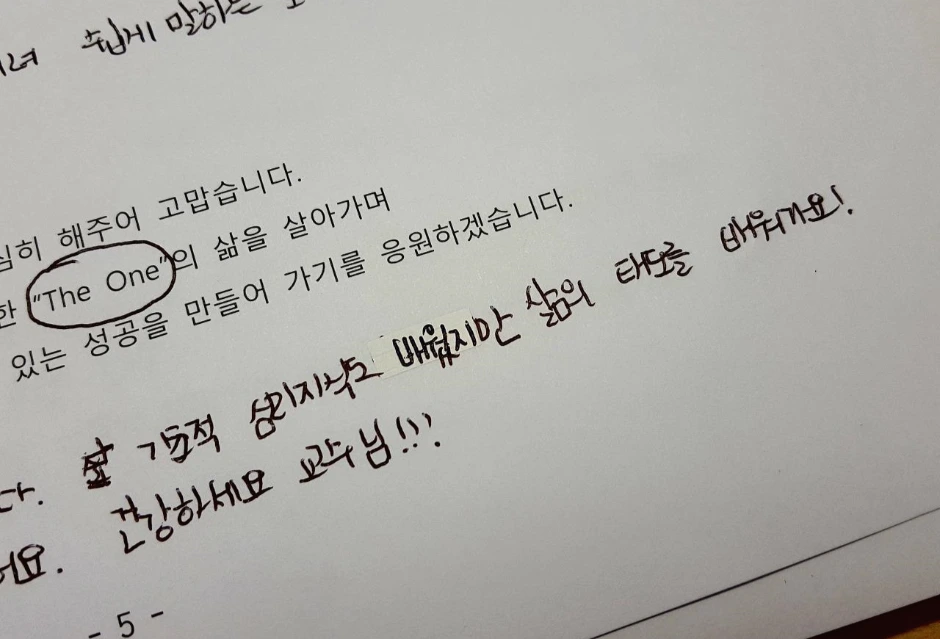 쉽게 말하는
심히 해주어 고맙습니다.
한 "The One"의 삶을 살아가며
있는 성공을 만들어 가기를 응원하겠습니다.
다. 기초적 심리지식도 배웠지만 삶의 태도를 배워가요!.
어요. 건강하세요 교수님!!!
- 5 -